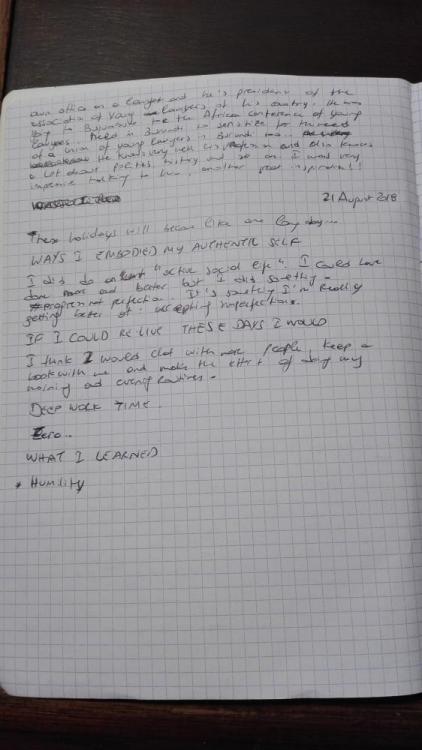 own office as a lawyer and he's president of the
association of young lawyers of his country. He was
to Bujumbura for the African conference of young
lawyers. held in Burundi to sensitize for the need
of a union of young lawyers in Burundi too..
He knows very well his profession and also knows
a lot about politics, history and so on. I was very
impressed talking to him, another great inspiration!!
21 August 2018
These holidays will become like one long day...
WAYS I EMBODIED MY AUTHENTIC SELF
I did do an "active social life". I could have
done more and better but I did something -
progress not perfection. It's I'm really
getting better at: accepting imperfections.
IF I COULD RE-LIVE THESE DAYS I WOULD
I think I would chat with more people, keep a
book with me and make the effort of doing my
morning and evening routines.
DEEP WORK TIME.
Zero..
WHAT I LEARNED
* Humility